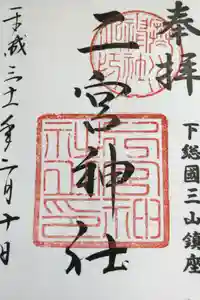 奉拝
下総國三山鎮座
二宮神社
平成三十一年二月十日